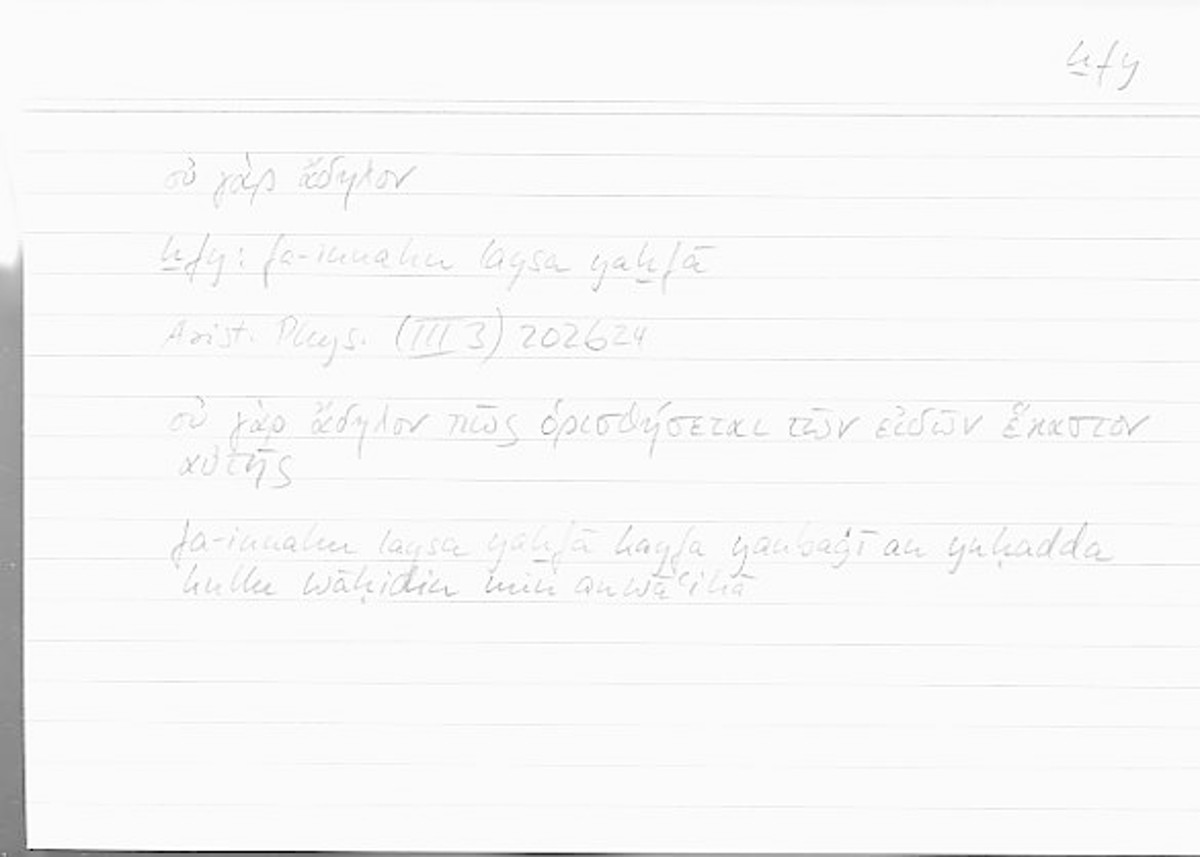 ḫfy
οὐ γὰρ ἄδηλον
ḫfy: fa-innahu laysa yaḫfā
Arist. Phys. (III 3) 202b24
οὐ γὰρ ἄδηλον πῶς ὁρισθήσεται τῶν εἰδῶν ἕκαστον
αὐτῆς
fa-innahu laysa yaḫfā kayfa yanbaġī an yuḥadda
kullu wāḥidin min anwāʿihā